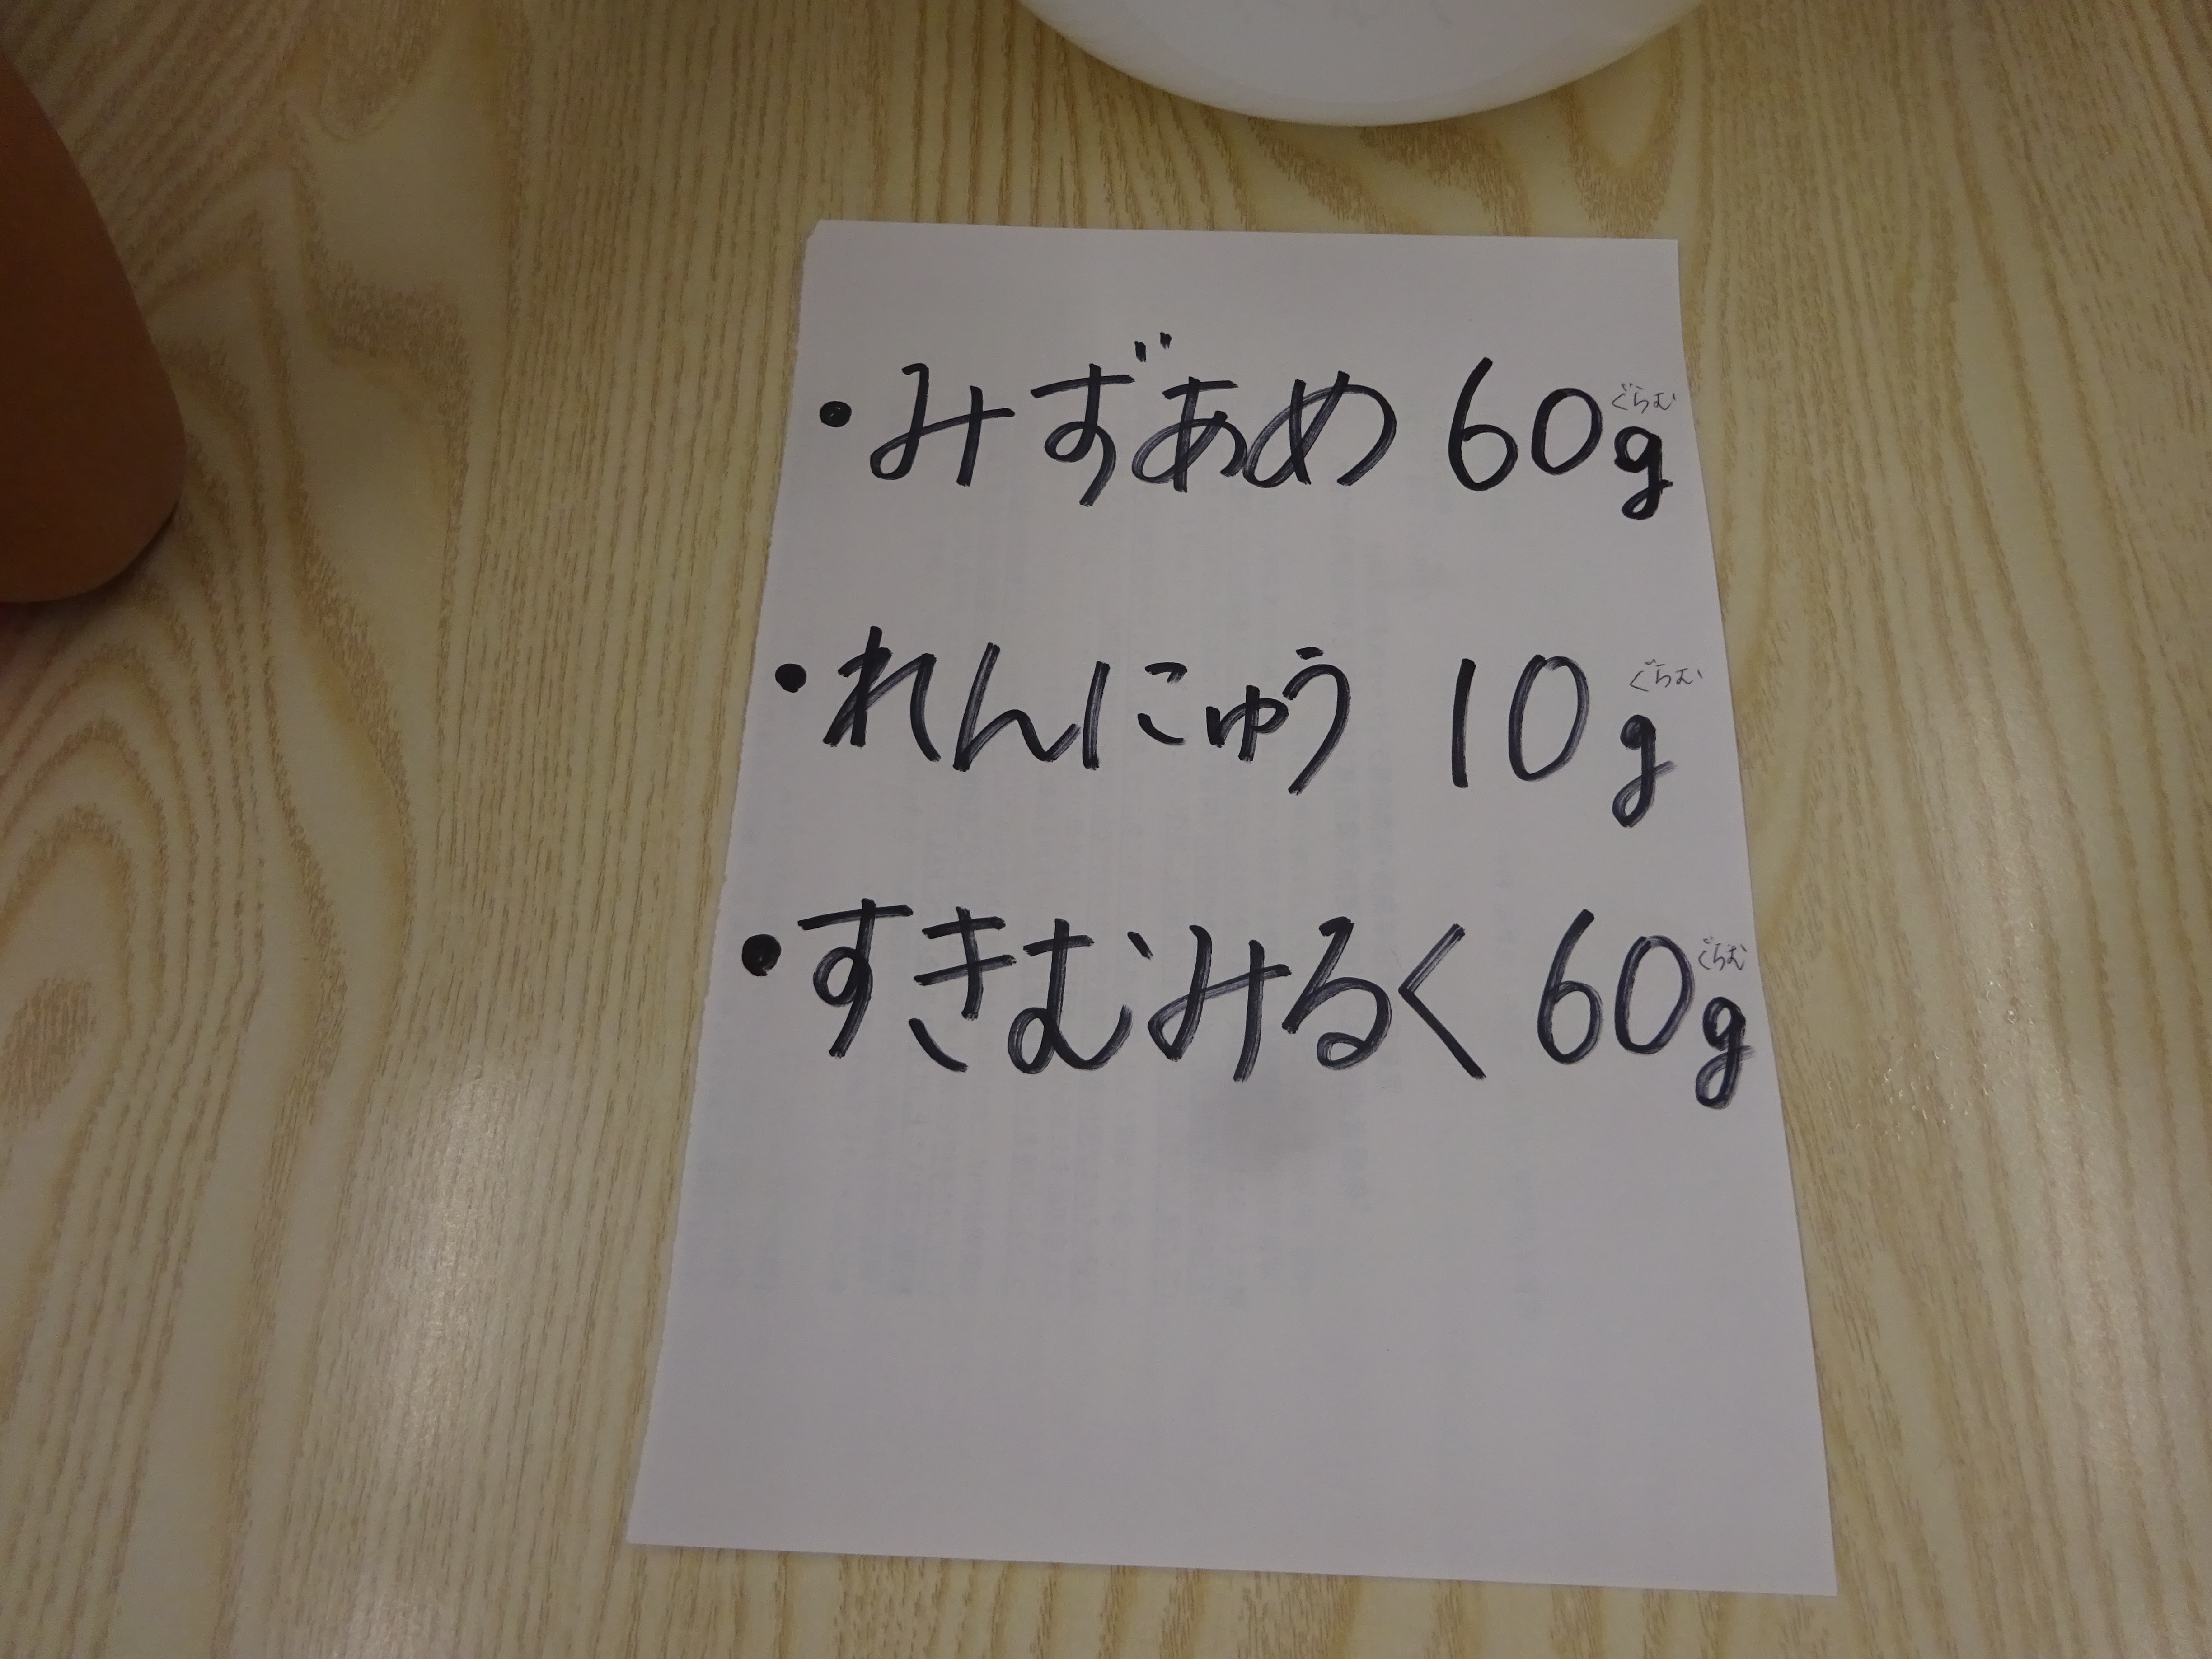 ・みずあめ 60g
ぐらむ
・れんにゅう 10g
ぐらむ
・すきむみるく 60g
ぐらむ